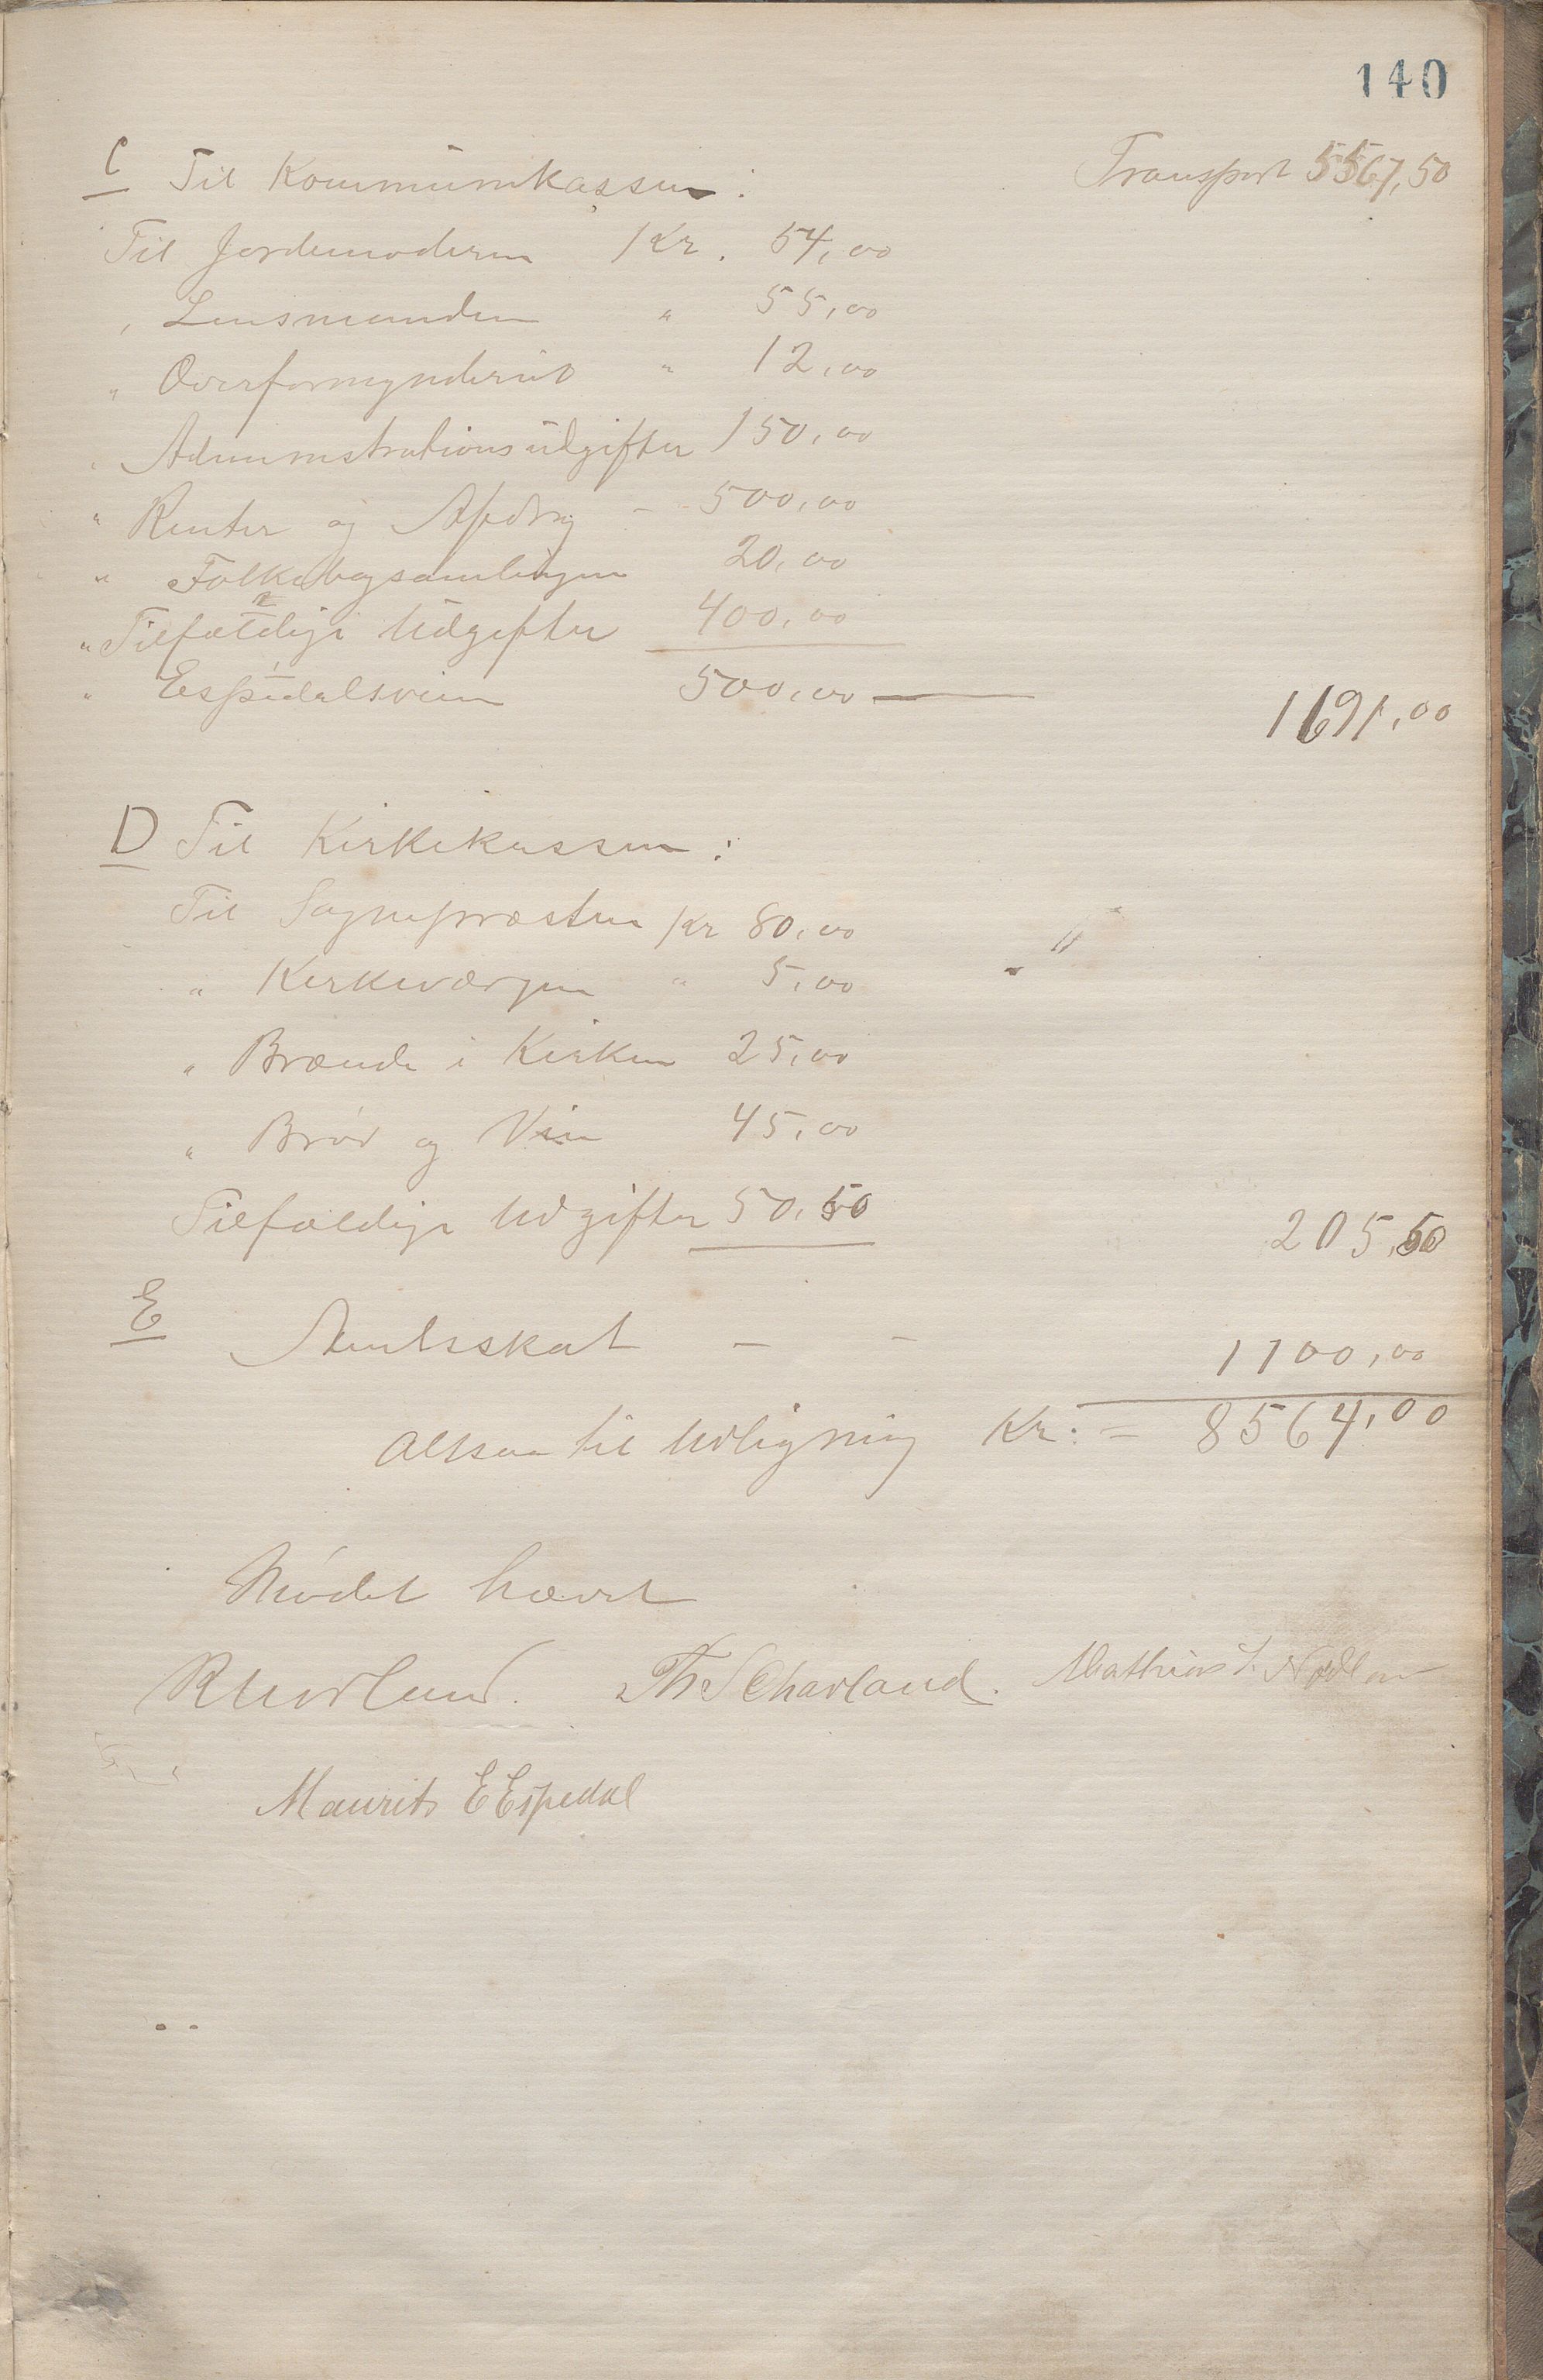 140
C Til Kommunekassen: Transport 5567,50
Til Jordemoderen Kr. 54,00
" Lensmanden " 55,00
" Overformynderiet " 12,00
" Administrationsudgifter 150,00
" Renter og Afdrag - 500,00
" Folkebogsamlingen 20,00
" Tilfældige Udgifter 400,00
" Espedalsveien 500,00 — 1691,00
D Til Kirkekassen:
Til Sognepræsten Kr 80,00
" Kirkeværgen " 5,00
" Brænde i Kirken 25,00
" Brød og Vin 45,00
Tilfældige Udgifter 50,50 205,50
E Amtsskat - - 1100,00
Altsaa til Udligning Kr: = 8564,00
Mødet hævet
Th S Eharland. Mathias
Maurits E Espedal